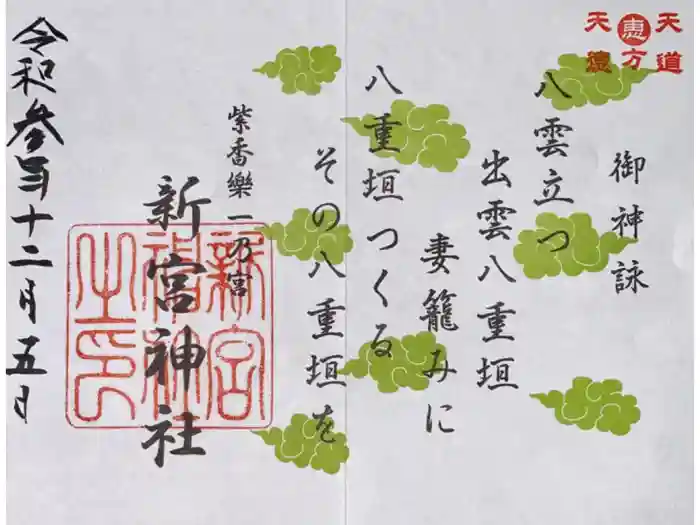 天道
惠方
天德
御神詠
八雲立つ
出雲八重垣
妻籠みに
八重垣つくる
その八重垣を
紫香樂一乃宮
新宮神社
新宮
神社
之印
令和参年十二月五日